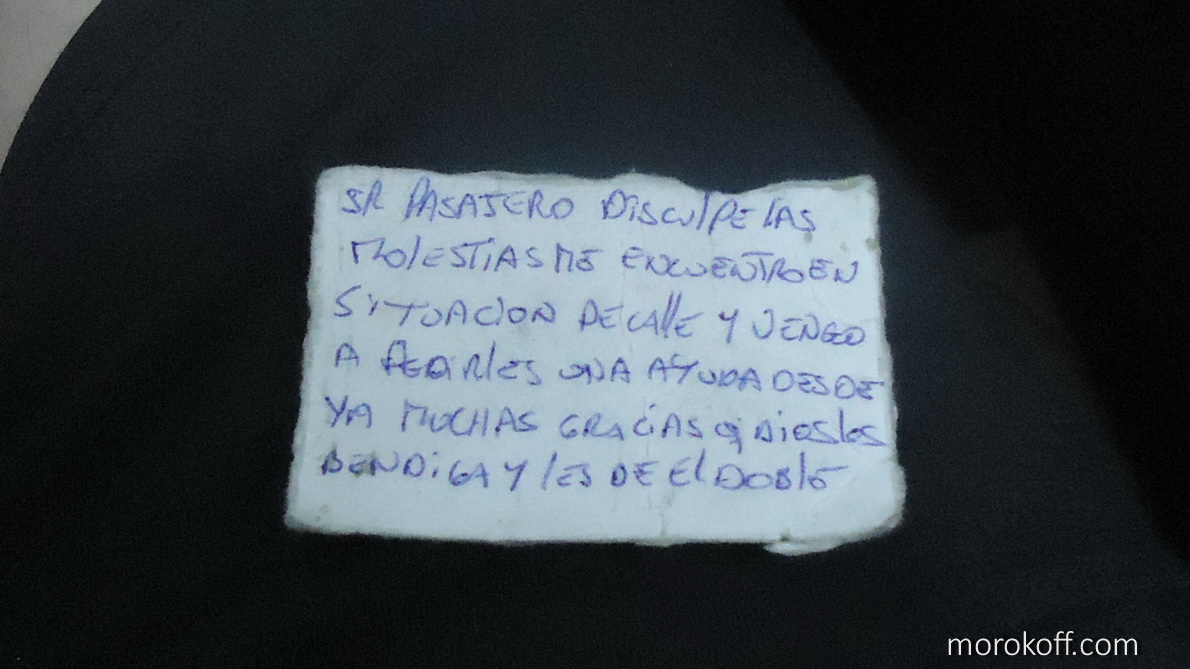 SR PASAJERO DiSCUlPE lAS
MOlESTiAS ME ENCUENTRO EN
SiTUACION DE CAllE Y VENGO
A PEDiRlES UNA AYUDA DESDE
YA MUCHAS GRACiAS q DiOS los
BENDiGA Y lES DE El DOBlE
morokoff.com